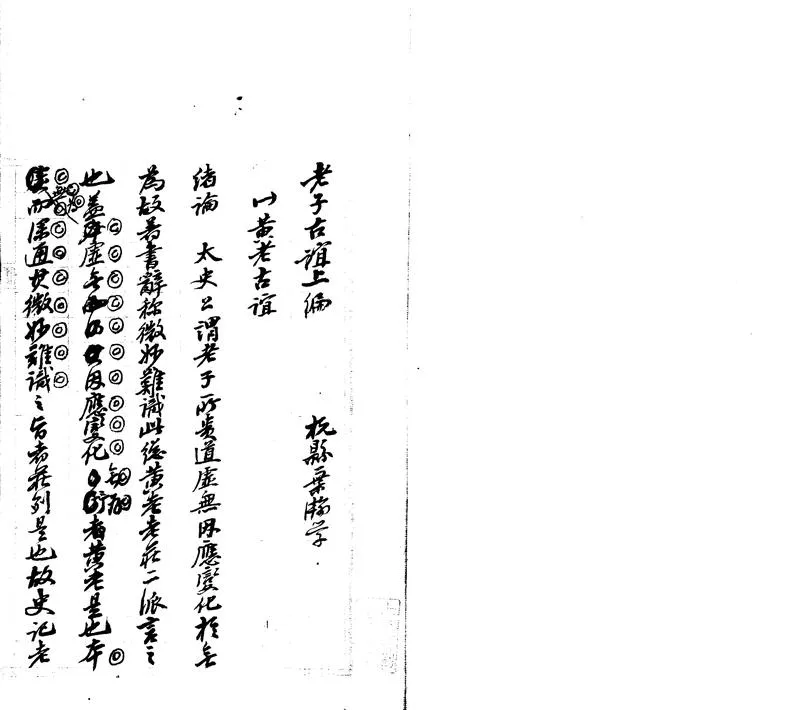 老子古誼上編
杭縣葉瀚学
黄老古誼
緒論 太史公謂老子所貴道虛無因應變化於無
為故著書辭称微妙難識此從黄老老莊二派言之
也蓋虛無因應變化者黄老是也本
而深通其微妙難識之旨者莊列是也故史记老